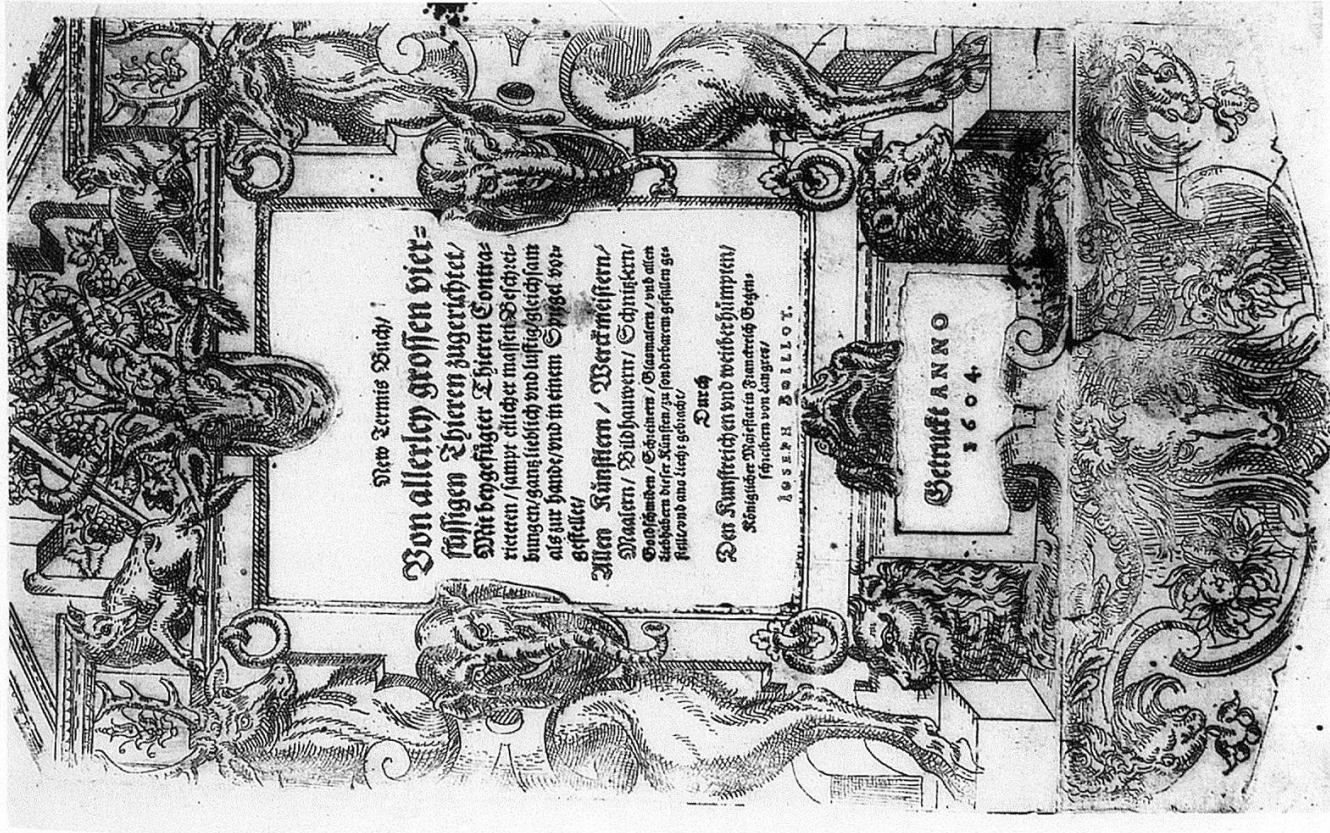 New Termis Buch/
Von allerley grossen vier=
füssigen Thieren zugerichtet/
Mit beygefügter Thieren Contra=
rieteten / sampt etlicher massen Beschrei=
bungen/ganz lieblich vnd lustig/gleichsam
als zur hande/vnd in einem Spiegel vor=
gestellet/
Allen Künstlern / Werckmeistern/
Maalern / Bildhauwern/ Schnitzkern/
Goldschmiden / Schreinern / Glasmalern / vnd allen
Liebhabern dieser Künsten/zu sonderbarem gefallen ge=
stellt/vnd ans Liecht gebracht/
Durch
Den Kunstreichen vnd weitberhümpten/
Königlicher Majestat in Franckreich Gegen=
schreibern von Langres/
IOSEPH BOILLOT.
Getruckt ANNO
1604.